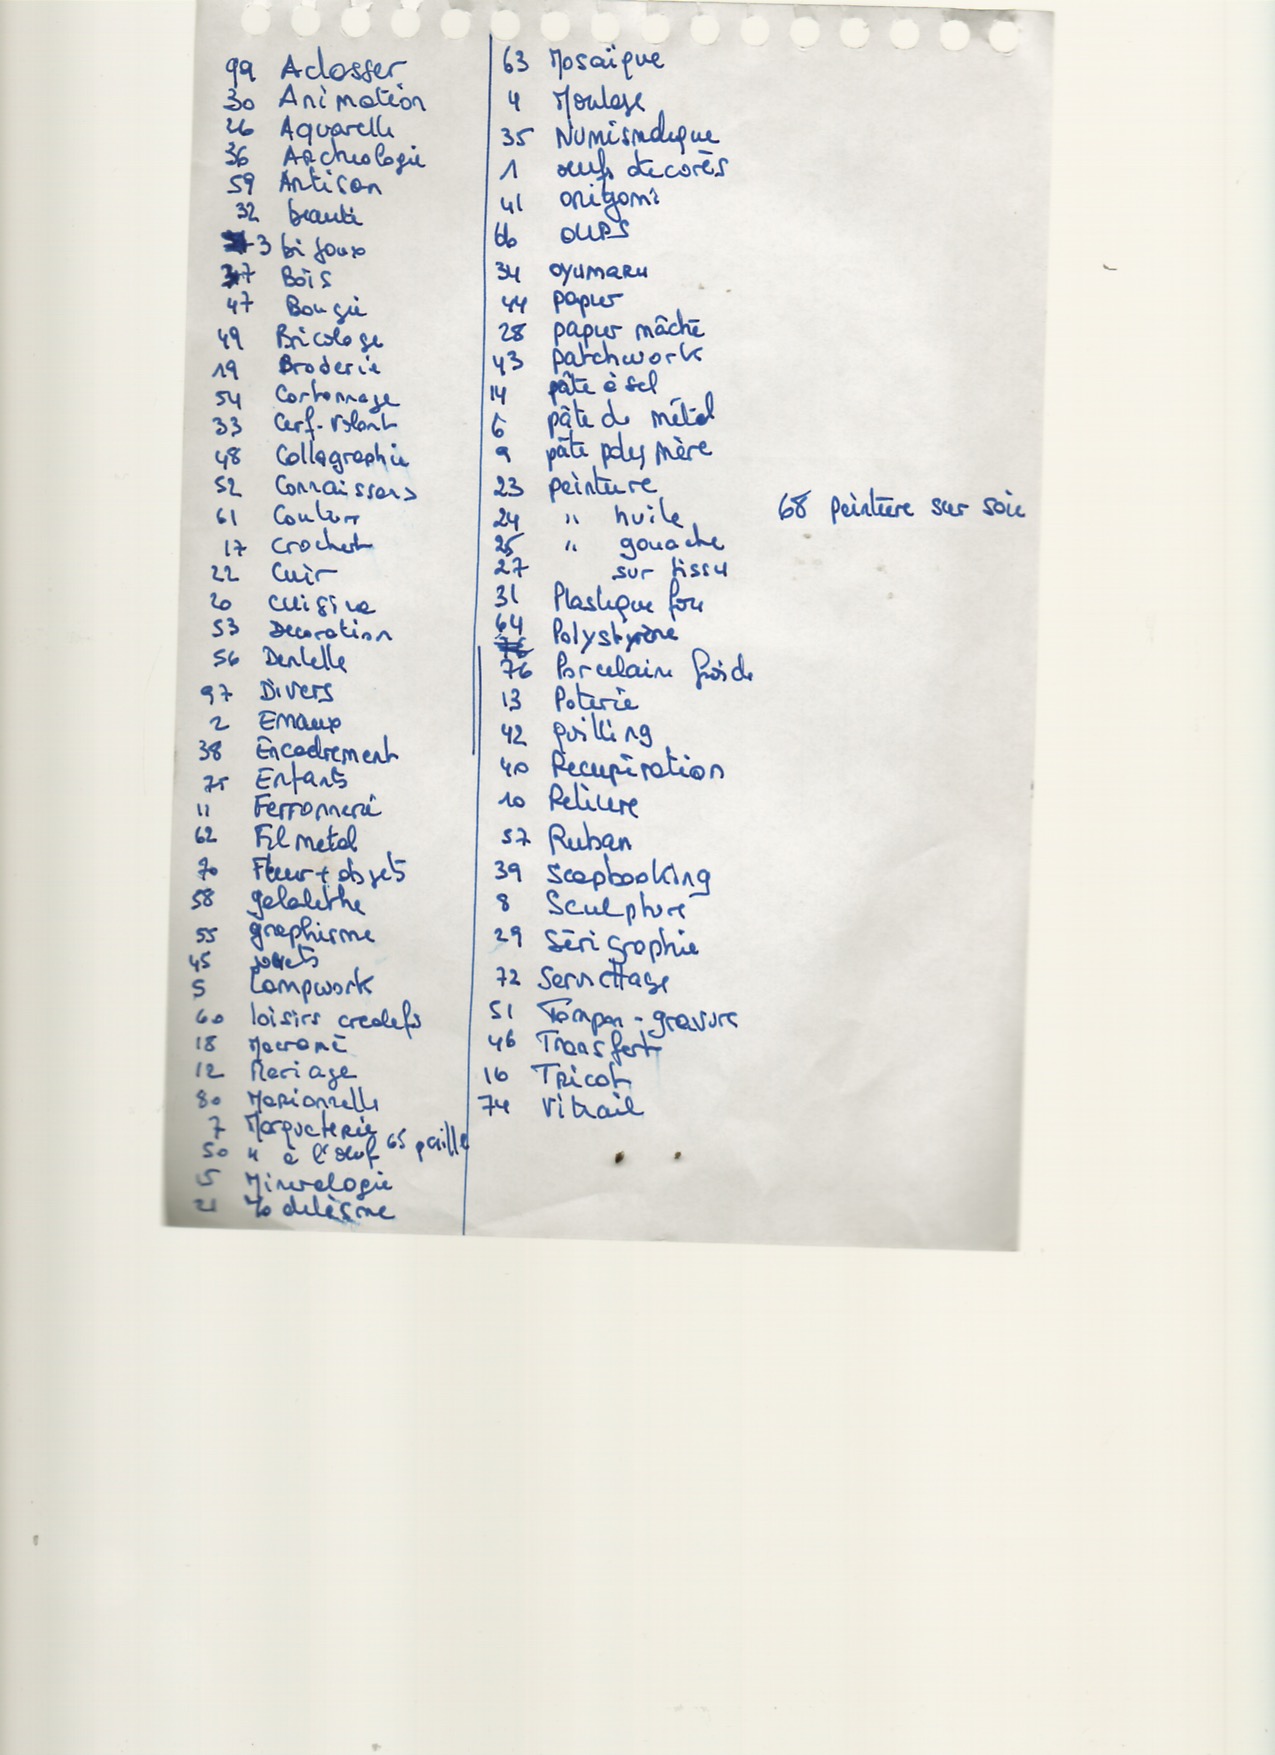 99 Aclasser
30 Animation
26 Aquarelle
36 Archeologie
59 Artisan
32 beauté
3 bijoux
37 Bois
47 Bougie
49 Bricolage
19 Broderie
54 Cartonnage
33 Cerf-volant
48 Collagraphie
52 Connaissans
61 Couture
17 Crochet
22 Cuir
20 Cuisine
53 Decoration
56 Dentelle
97 Divers
2 Emaux
38 Encadrement
75 Enfants
11 Ferronnerie
62 Fil metal
70 Fleur + objets
58 galalithe
55 graphisme
45 jouets
5 Lampwork
60 loisirs creatifs
18 Macramé
12 Mariage
80 Marionnette
7 Marqueterie
50 " à l'oeuf 65 paille
15 Mineralogie
21 Modelisme
63 Mosaïque
4 Moulage
35 Numismatique
1 oeufs decorés
41 origami
66 OURS
34 oyumaru
44 papier
28 papier mâché
43 patchwork
14 pâte à sel
6 pâte de métal
9 pâte polymère
23 peinture
24 " huile
68 peinture sur soie
25 " gouache
27 sur tissu
31 Plastique fou
64 Polystyrène
76 Porcelaine froide
13 Poterie
42 quilling
40 Recupération
10 Reliure
57 Ruban
39 Scapbooking
8 Sculpture
29 Sérigraphie
72 Serviettage
51 Tampon-gravure
46 Transfert
16 Tricot
74 Vitrail